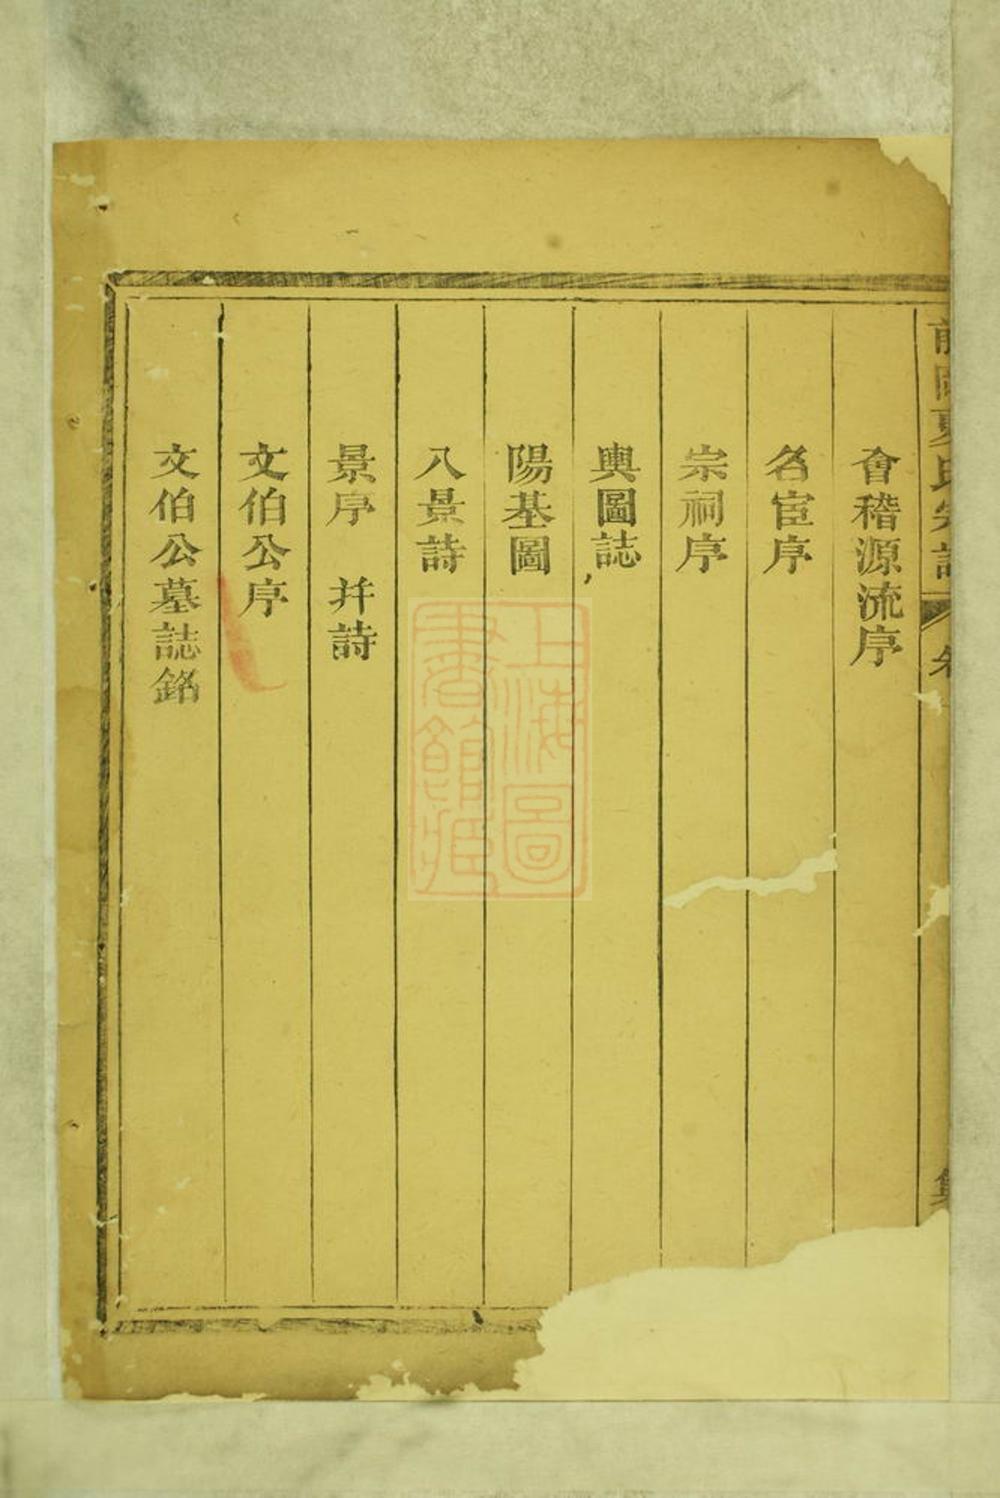 夏氏宗譜
會稽源流序
名宦序
宗祠序
輿圖誌
陽基圖
八景詩
景序 并詩
文伯公序
文伯公墓誌銘
上海圖書館藏